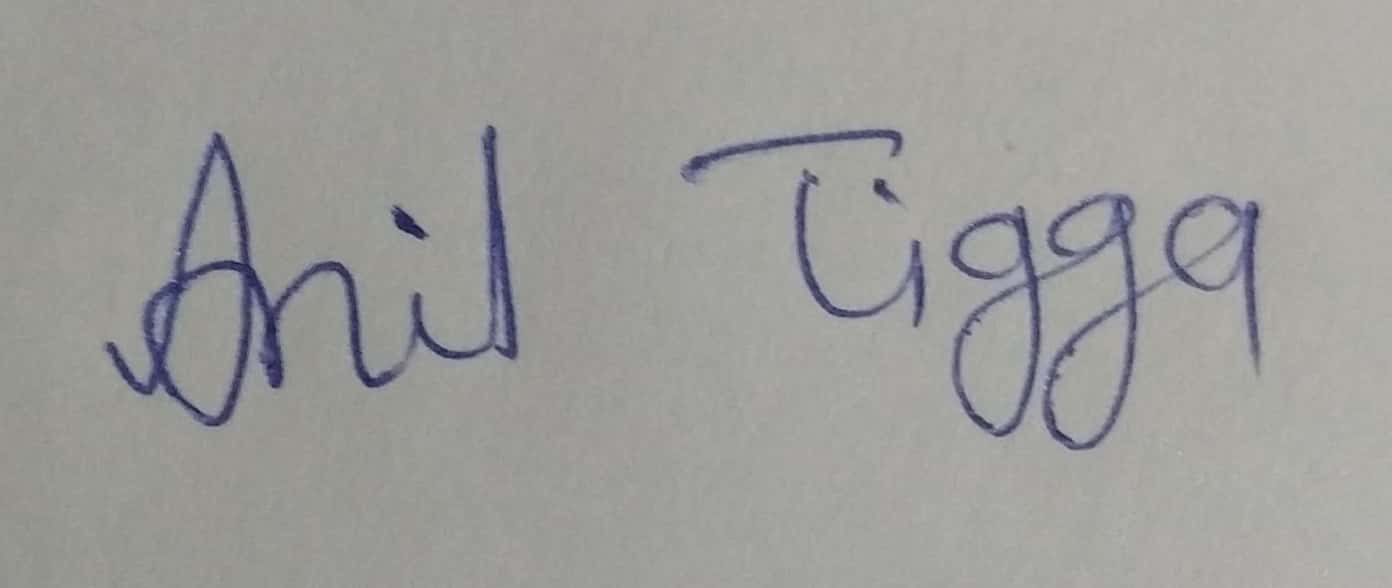 Anil Tigga